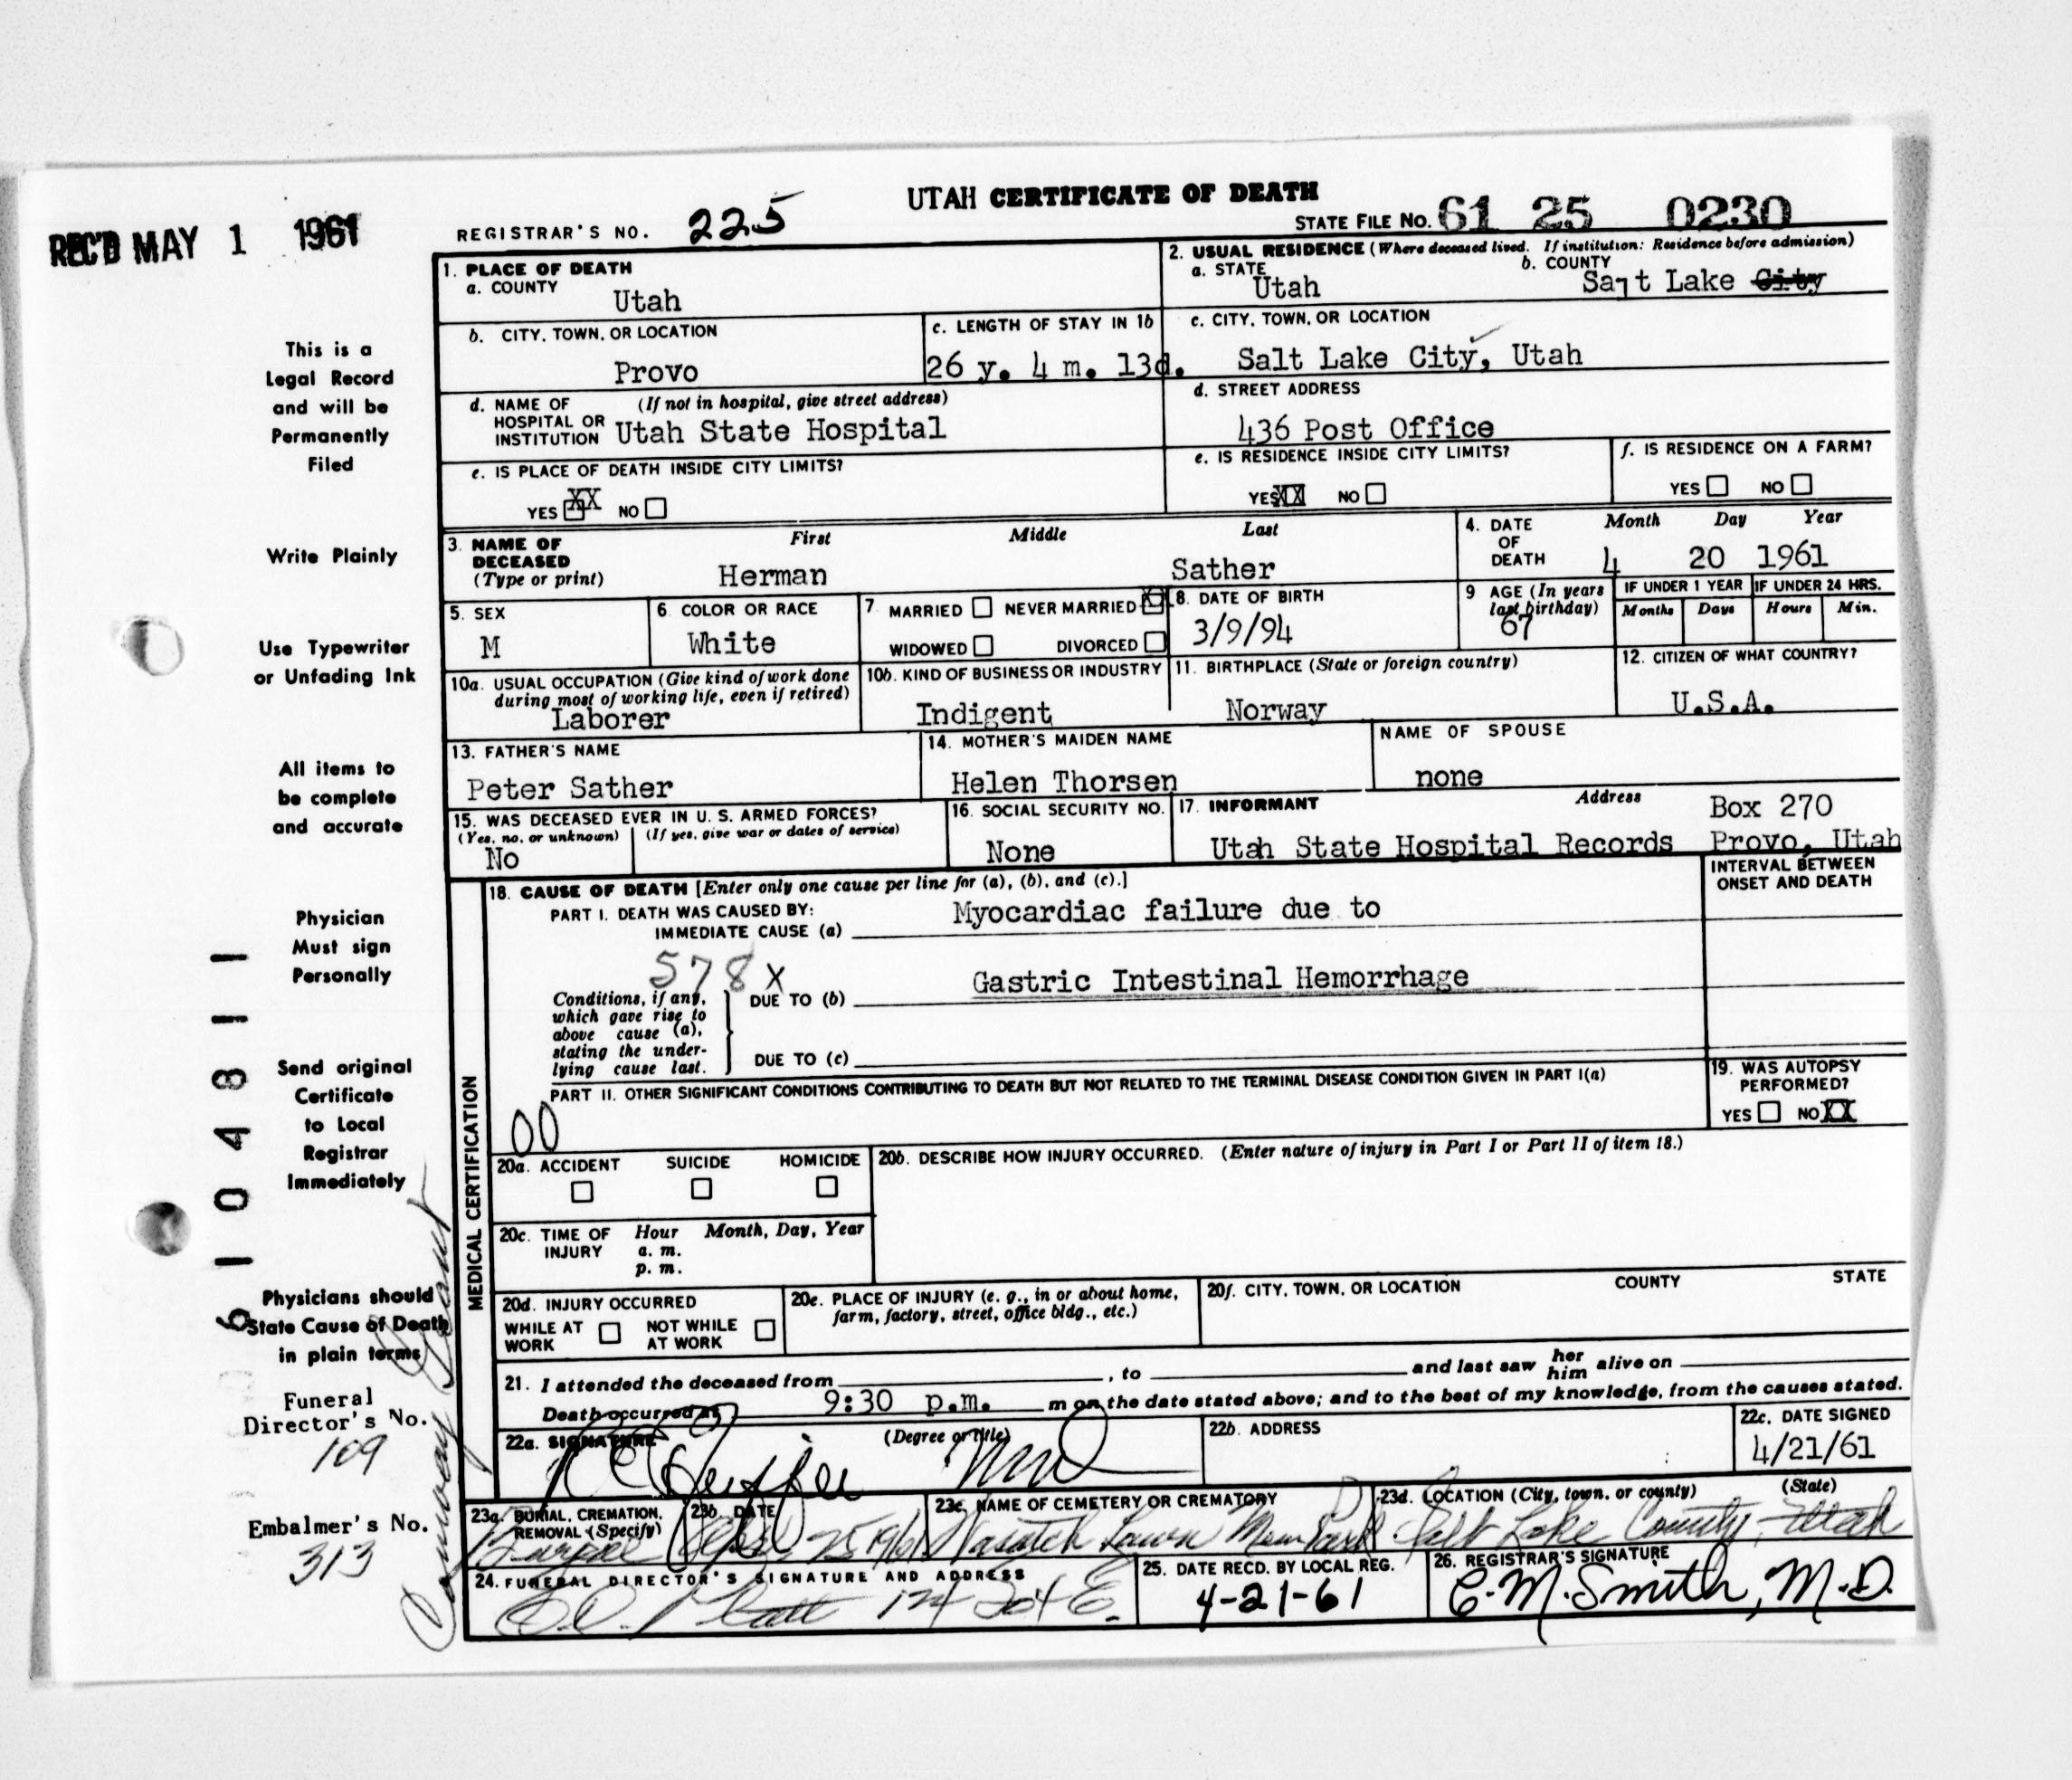 UTAH CERTIFICATE OF DEATH
REC'D MAY 1 1961
REGISTRAR'S NO. 225
STATE FILE NO. 61 25 0230
This is a
Legal Record
and will be
Permanently
Filed
Write Plainly
Use Typewriter
or Unfading Ink
All items to
be complete
and accurate
Physician
Must sign
Personally
Send original
Certificate
to Local
Registrar
Immediately
Physicians should
State Cause of Death
in plain terms
Funeral
Director's No.
109
Embalmer's No.
313
6 1 0 4 8 1 1
1. PLACE OF DEATH
a. COUNTY
Utah
2. USUAL RESIDENCE (Where deceased lived. If institution: Residence before admission)
a. STATE
Utah
b. COUNTY
Salt Lake City
b. CITY, TOWN, OR LOCATION
Provo
c. LENGTH OF STAY IN 1b
26 y. 4 m. 13d.
c. CITY, TOWN, OR LOCATION
Salt Lake City, Utah
d. NAME OF (If not in hospital, give street address)
HOSPITAL OR
INSTITUTION Utah State Hospital
d. STREET ADDRESS
436 Post Office
e. IS PLACE OF DEATH INSIDE CITY LIMITS?
YES XX NO
e. IS RESIDENCE INSIDE CITY LIMITS?
YES XX NO
f. IS RESIDENCE ON A FARM?
YES NO
3. NAME OF
DECEASED
(Type or print)
First Middle Last
Herman Sather
4. DATE
OF
DEATH
Month Day Year
4 20 1961
5. SEX
M
6. COLOR OR RACE
White
7. MARRIED NEVER MARRIED X
WIDOWED DIVORCED
8. DATE OF BIRTH
3/9/94
9 AGE (In years
last birthday)
67
IF UNDER 1 YEAR
Months Days
IF UNDER 24 HRS.
Hours Min.
10a. USUAL OCCUPATION (Give kind of work done
during most of working life, even if retired)
Laborer
10b. KIND OF BUSINESS OR INDUSTRY
Indigent
11. BIRTHPLACE (State or foreign country)
Norway
12. CITIZEN OF WHAT COUNTRY?
U.S.A.
13. FATHER'S NAME
Peter Sather
14. MOTHER'S MAIDEN NAME
Helen Thorsen
NAME OF SPOUSE
none
15. WAS DECEASED EVER IN U. S. ARMED FORCES?
(Yes, no, or unknown) (If yes, give war or dates of service)
No
16. SOCIAL SECURITY NO.
None
17. INFORMANT Address
Box 270
Utah State Hospital Records Provo, Utah
18. CAUSE OF DEATH [Enter only one cause per line for (a), (b), and (c).]
INTERVAL BETWEEN
ONSET AND DEATH
PART I. DEATH WAS CAUSED BY:
IMMEDIATE CAUSE (a) Myocardiac failure due to
578X
Conditions, if any,
which gave rise to
above cause (a),
stating the under-
lying cause last.
DUE TO (b) Gastric Intestinal Hemorrhage
DUE TO (c)
PART II. OTHER SIGNIFICANT CONDITIONS CONTRIBUTING TO DEATH BUT NOT RELATED TO THE TERMINAL DISEASE CONDITION GIVEN IN PART I(a)
00
19. WAS AUTOPSY
PERFORMED?
YES NO XX
MEDICAL CERTIFICATION
20a. ACCIDENT SUICIDE HOMICIDE
20b. DESCRIBE HOW INJURY OCCURRED. (Enter nature of injury in Part I or Part II of item 18.)
20c. TIME OF
INJURY
Hour Month, Day, Year
a. m.
p. m.
20d. INJURY OCCURRED
WHILE AT
WORK
NOT WHILE
AT WORK
20e. PLACE OF INJURY (e. g., in or about home,
farm, factory, street, office bldg., etc.)
20f. CITY, TOWN, OR LOCATION COUNTY STATE
21. I attended the deceased from , to and last saw her
him alive on
Death occurred at 9:30 p.m. m on the date stated above; and to the best of my knowledge, from the causes stated.
22a. SIGNATURE (Degree or title)
22b. ADDRESS
22c. DATE SIGNED
4/21/61
23a. BURIAL, CREMATION,
REMOVAL (Specify)
Burial
23b. DATE
25 1961
23c. NAME OF CEMETERY OR CREMATORY
Wasatch Lawn Mem Park
23d. LOCATION (City, town, or county) (State)
Salt Lake County, Utah
24. FUNERAL DIRECTOR'S SIGNATURE AND ADDRESS
25. DATE RECD. BY LOCAL REG.
4-21-61
26. REGISTRAR'S SIGNATURE
E. M. Smith, M.D.